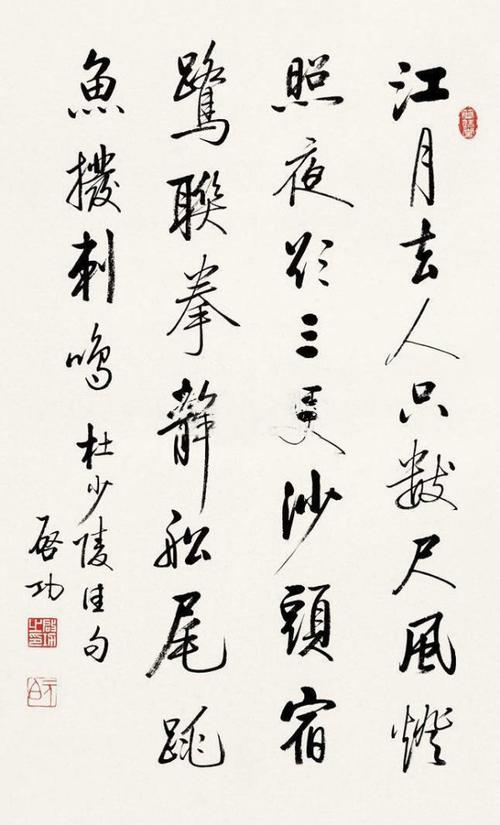 江月去人只數尺風燈
照夜欲三更沙頭宿
鷺聯拳靜船尾跳
魚撥刺鳴 杜少陵佳句
啓功
啓功之印
元白